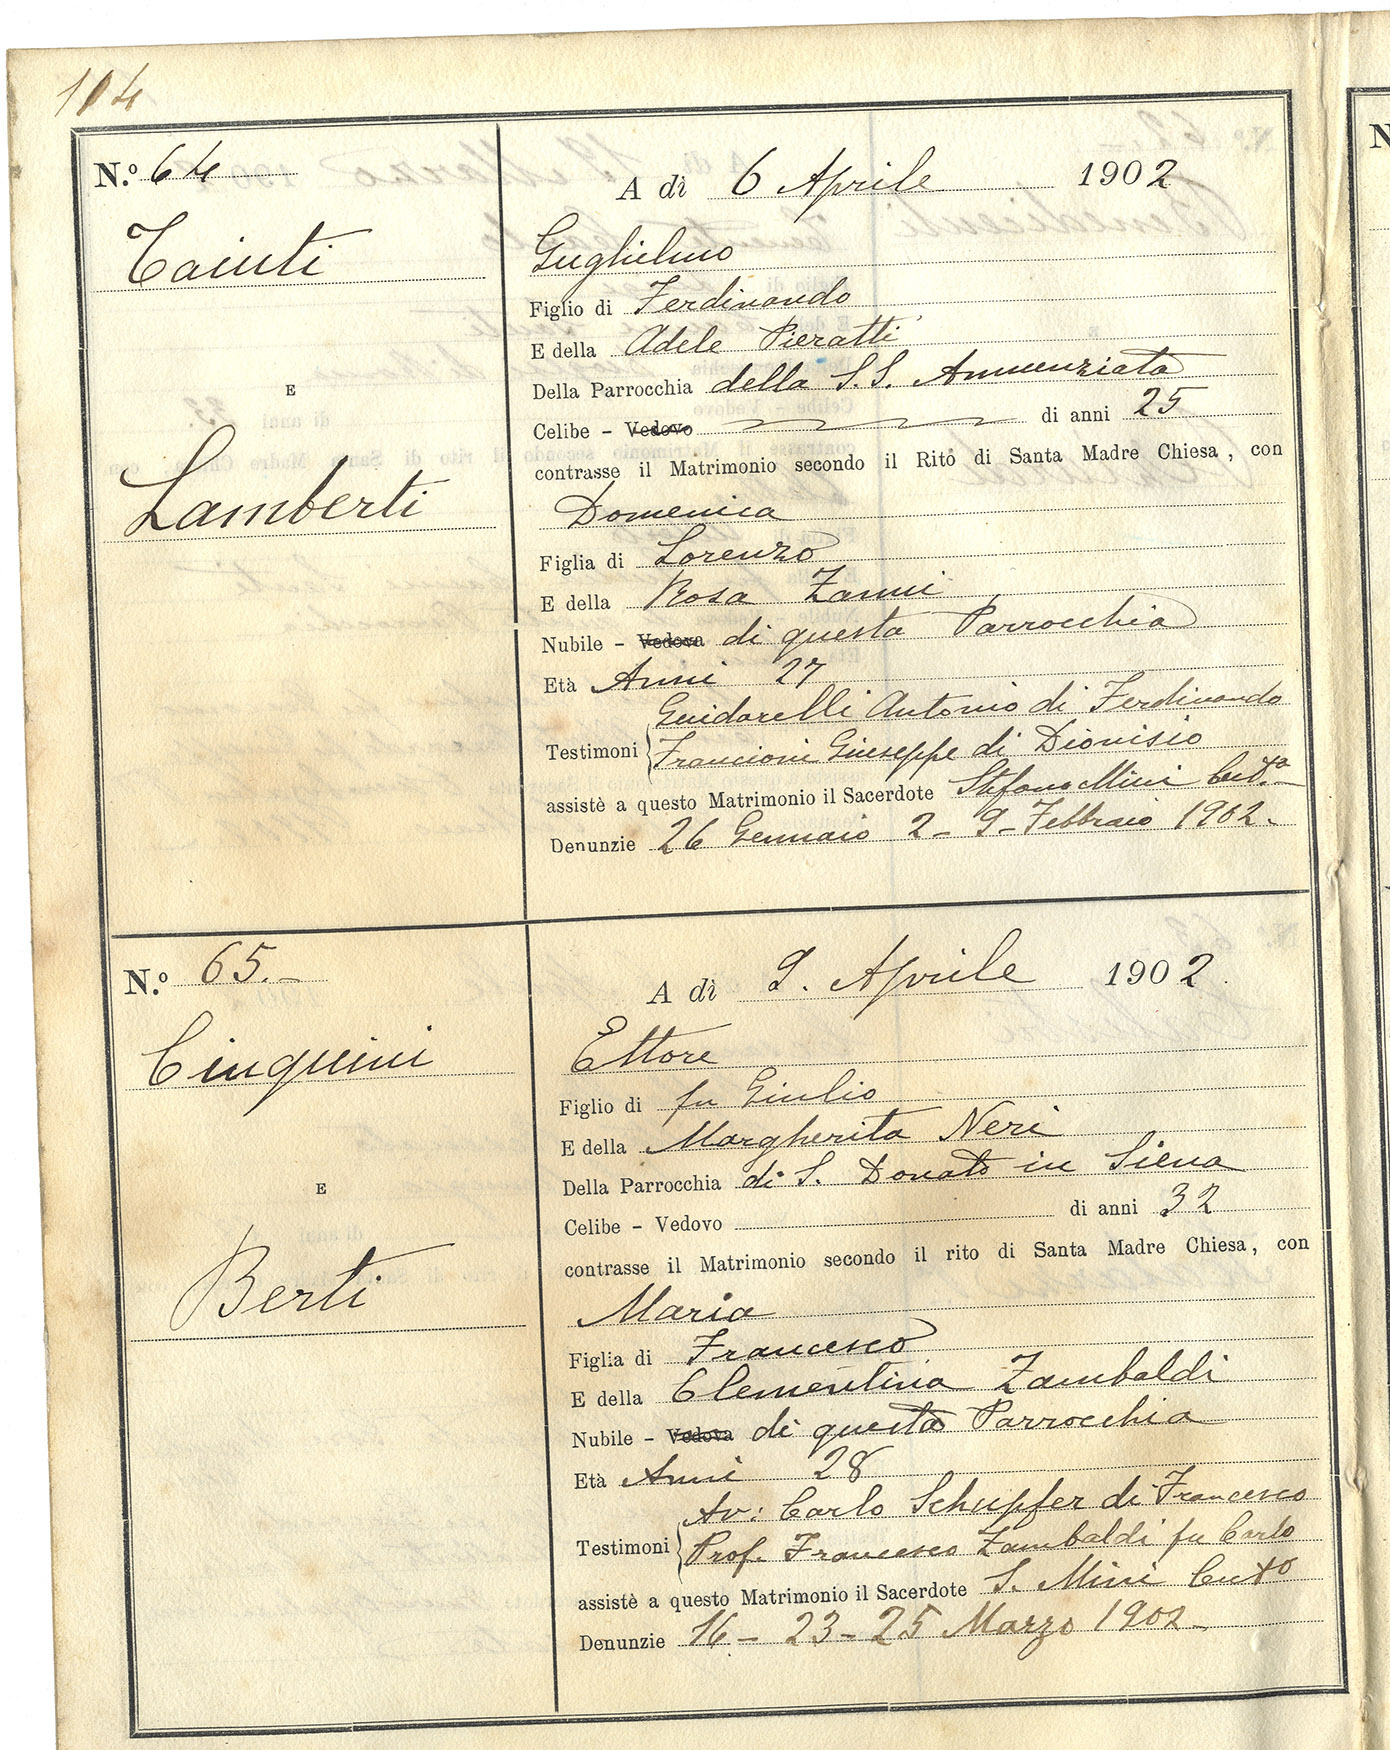 104
N.º 64
Tainti
E
Lamberti
A dì 6 Aprile 1902
Guglielmo
Figlio di Ferdinando
E della Adele Pieratti
Della Parrocchia della S.S. Annunziata
Celibe – Vedovo di anni 25
contrasse il Matrimonio secondo il Rito di Santa Madre Chiesa, con
Domenica
Figlia di Lorenzo
E della Rosa Zanni
Nubile – Vedova di questa Parrocchia
Età Anni 27
Guidarelli Antonio di Ferdinando
Testimoni Francioni Giuseppe di Dionisio
assistè a questo Matrimonio il Sacerdote Stefano Mini
Denunzie 26 Gennaio 2 – 9 – Febbraio 1902 –
N.º 65. –
Cinquini
E
Berti
A dì 9. Aprile 1902.
Ettore
Figlio di fu Giulio
E della Margherita Neri
Della Parrocchia di S. Donato in Siena
Celibe – Vedovo di anni 32
contrasse il Matrimonio secondo il rito di Santa Madre Chiesa, con
Maria
Figlia di Francesco
E della Clementina Zambaldi
Nubile – Vedova di questa Parrocchia
Età Anni 28
Av: Carlo Schupfer di Francesco
Testimoni Prof. Francesco Zambaldi fu Carlo
assistè a questo Matrimonio il Sacerdote S. Mini
Denunzie 16 – 23 – 25 Marzo 1902 –
N